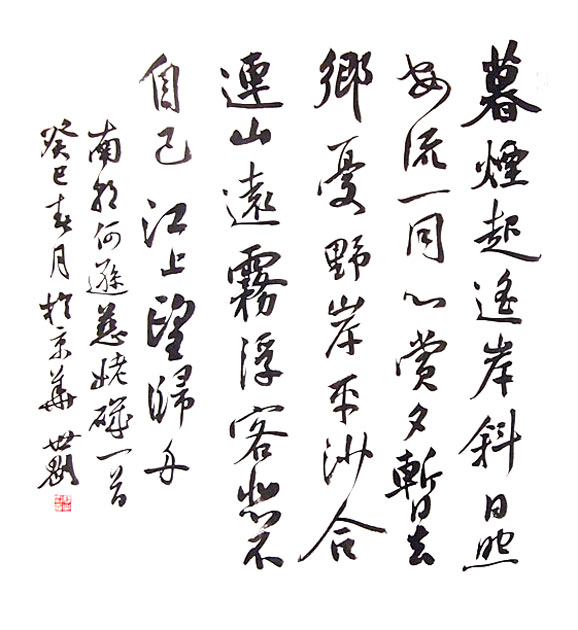 暮煙起遙岸斜日照
安流一同心賞夕暫去
鄉憂野岸平沙合
連山遠霧浮客悲不
自己江上望歸舟
南朝何遜慈姥磯一首
癸巳春月於京華